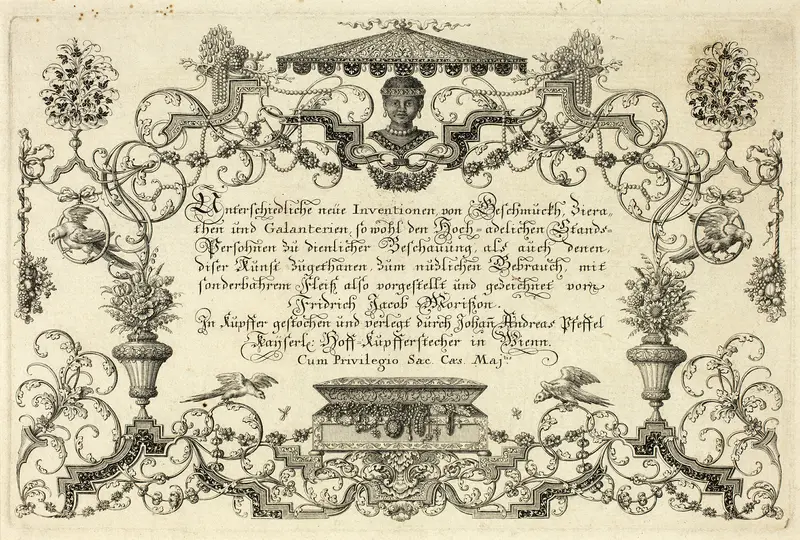 Unterschiedliche neüe Inventionen von Geschmückh, Ziera-
then und Galanterien, so wohl den Hoch-adelichen Stands-
Persohnen zu dienlicher Beschauung, als auch denen,
diser Kunst zugethanen, zum nüzlichen Gebrauch, mit
sonderbahrem Fleiß also vorgestellt und gezeichnet von
Fridrich Jacob Morißon.
In Kupffer gestochen und verlegt durch Johañ Andreas Pfeffel
Kayserle Hoff-Kupfferstecher in Wienn.
Cum Privilegio Sac. Cæs. Maj